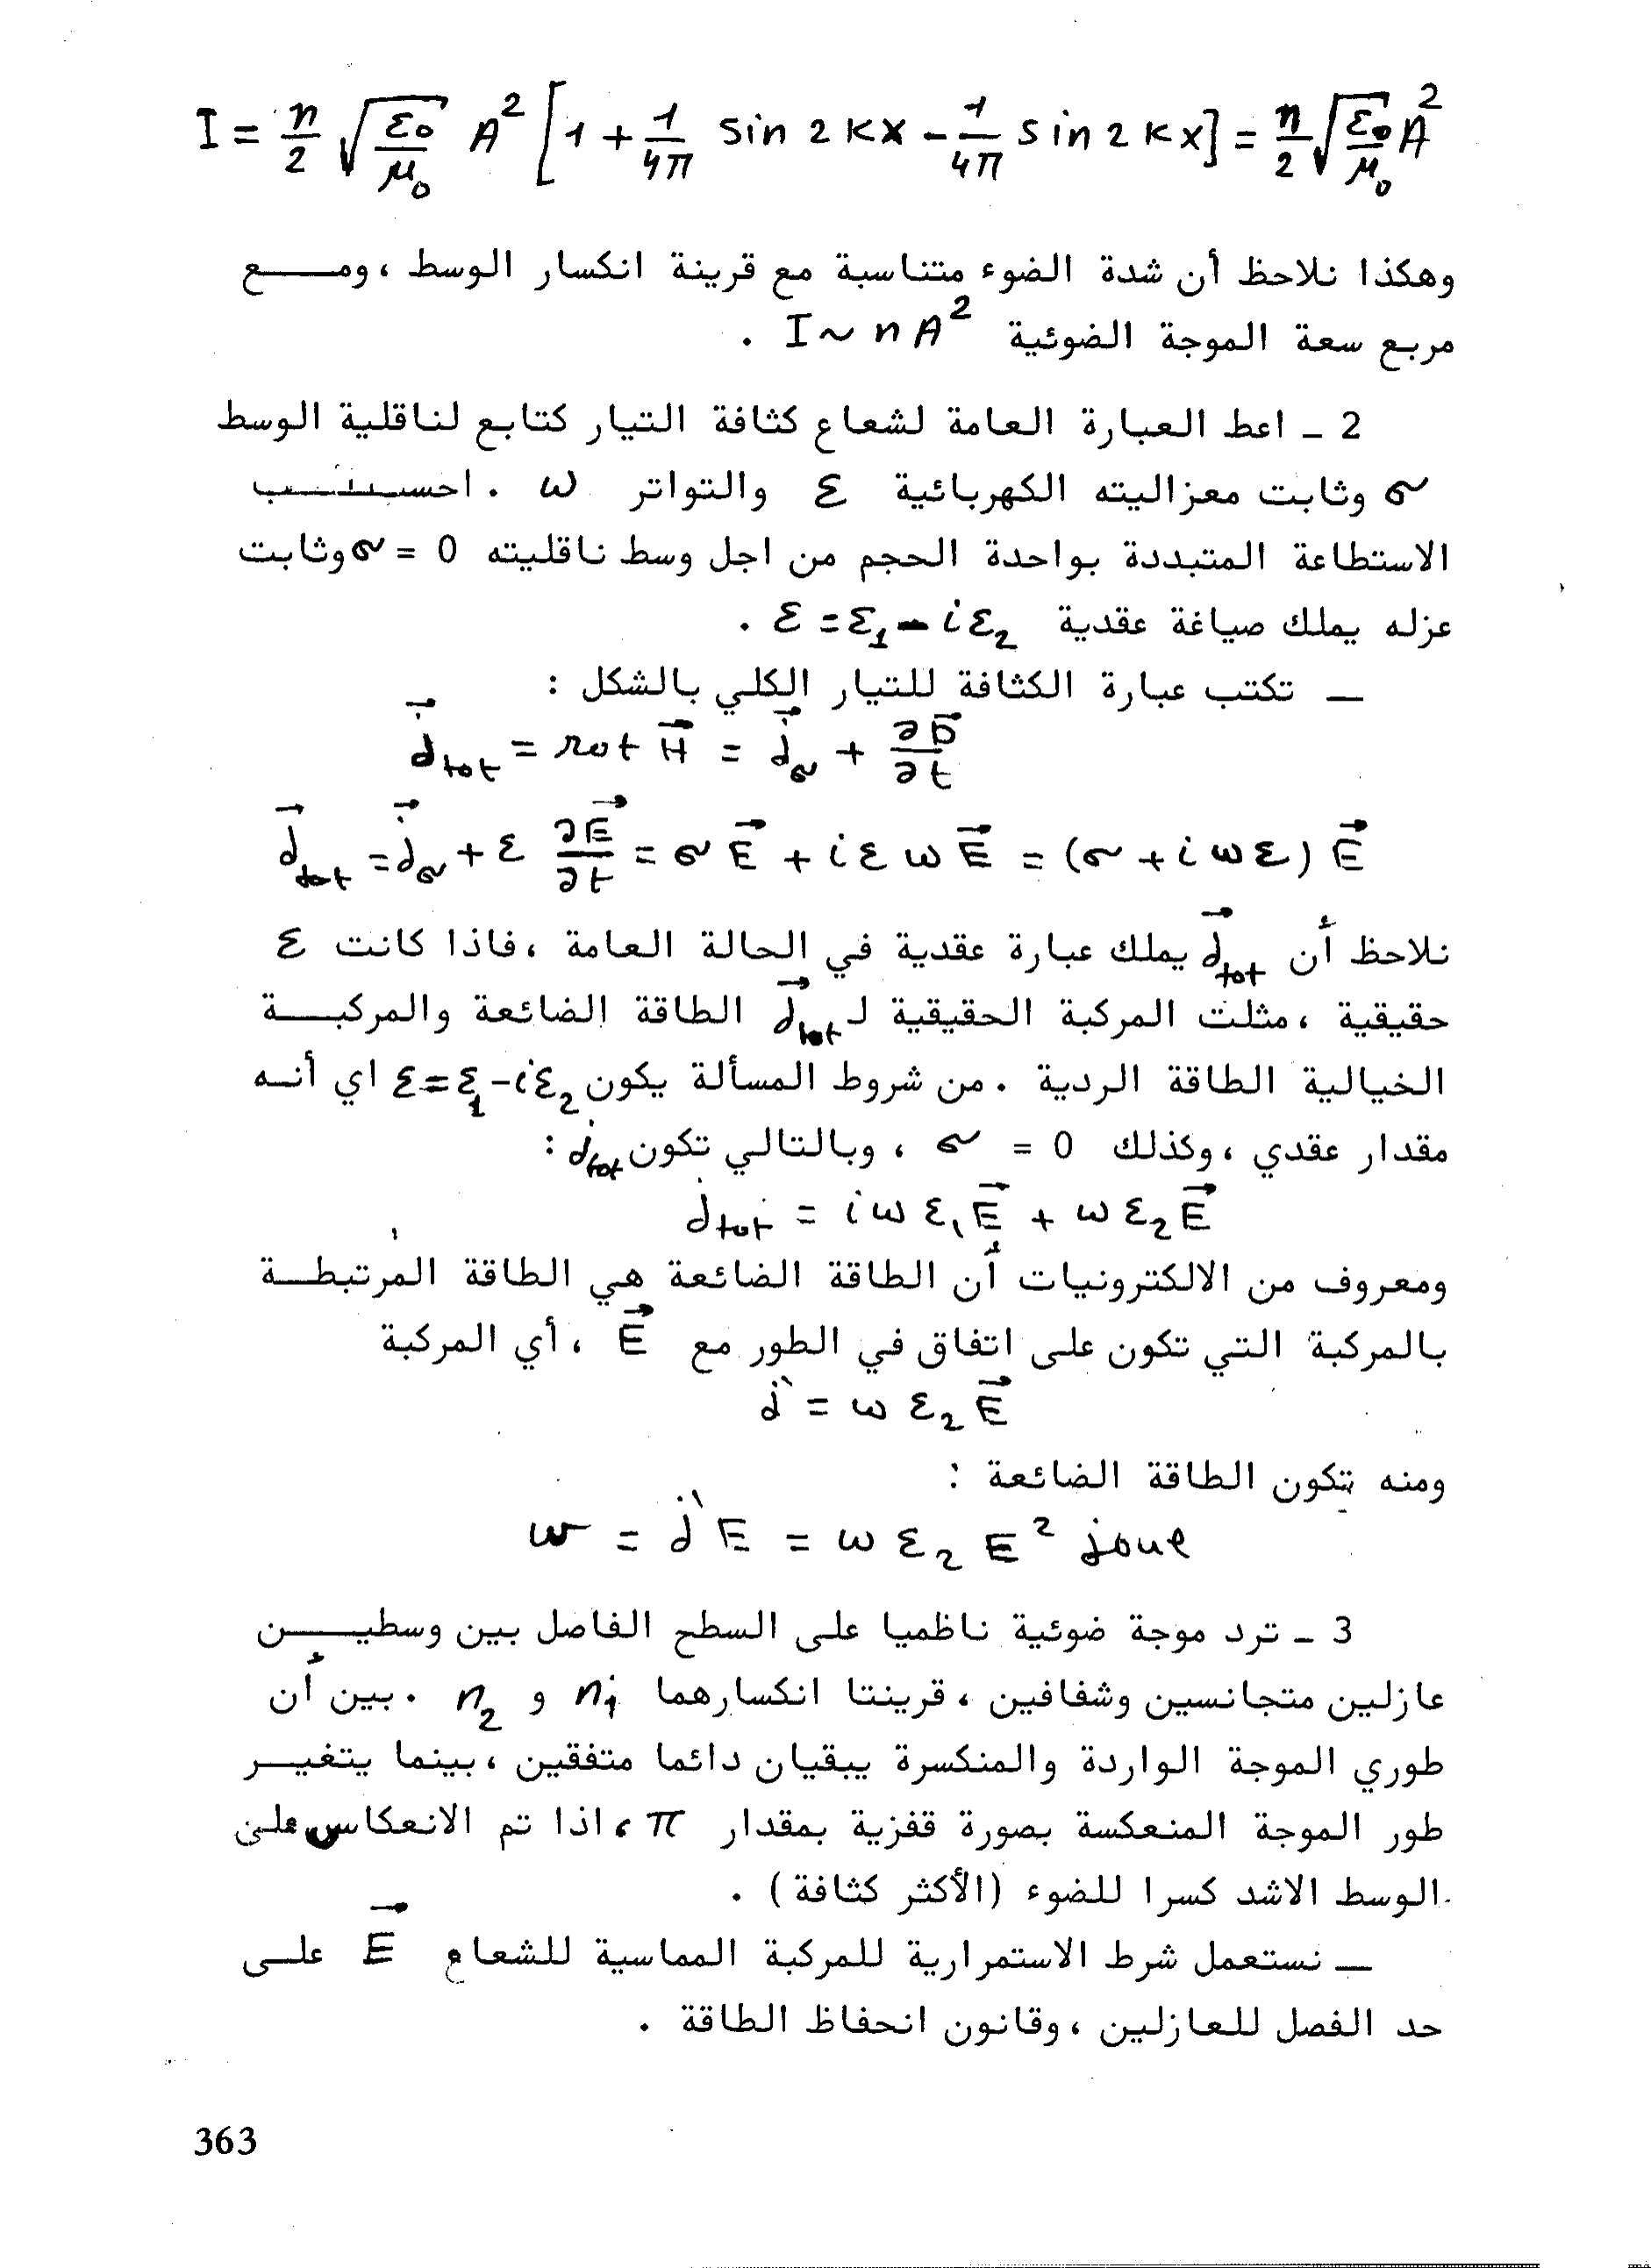 I = n/2 √(ε₀/μ₀) A² [1 + 1/4π sin 2kx - 1/4π sin 2kx] = n/2 √(ε₀/μ₀) A²
وهكذا نلاحظ أن شدة الضوء متناسبة مع قرينة انكسار الوسط ، ومـــع
مربع سعة الموجة الضوئية I ~ n A² .
2 ـ اعط العبارة العامة لشعاع كثافة التيار كتابع لناقلية الوسط
σ وثابت معزاليته الكهربائية ε والتواتر ω . احســب
الاستطاعة المتبددة بواحدة الحجم من اجل وسط ناقليته σ = 0 وثابت
عزله يملك صياغة عقدية ε = ε₁ - iε₂ .
ـ تكتب عبارة الكثافة للتيار الكلي بالشكل :
j⃗tot = rot H⃗ = j⃗σ + ∂D⃗/∂t
j⃗tot = j⃗σ + ε ∂E⃗/∂t = σ E⃗ + i ε ω E⃗ = (σ + i ω ε) E⃗
نلاحظ أن j⃗tot يملك عبارة عقدية في الحالة العامة ، فاذا كانت ε
حقيقية ، مثلت المركبة الحقيقية لـ j⃗tot الطاقة الضائعة والمركبـــة
الخيالية الطاقة الردية . من شروط المسألة يكون ε = ε₁ - iε₂ اي أنـه
مقدار عقدي ، وكذلك σ = 0 ، وبالتالي تكون jtot :
jtot = i ω ε₁ E⃗ + ω ε₂ E⃗
ومعروف من الالكترونيات أن الطاقة الضائعة هي الطاقة المرتبطــة
بالمركبة التي تكون على اتفاق في الطور مع E⃗ ، أي المركبة
j` = ω ε₂ E⃗
ومنه تكون الطاقة الضائعة :
w = j` E = ω ε₂ E² joue
3 ـ ترد موجة ضوئية ناظميا على السطح الفاصل بين وسطيـــن
عازلين متجانسين وشفافين ، قرينتا انكسارهما n₁ و n₂ . بين أن
طوري الموجة الواردة والمنكسرة يبقيان دائما متفقين ، بينما يتغيــر
طور الموجة المنعكسة بصورة قفزية بمقدار π ، اذا تم الانعكاس على
الوسط الاشد كسرا للضوء (الأكثر كثافة ) .
ـ نستعمل شرط الاستمرارية للمركبة المماسية للشعاع E⃗ علـى
حد الفصل للعازلين ، وقانون انحفاظ الطاقة .
363